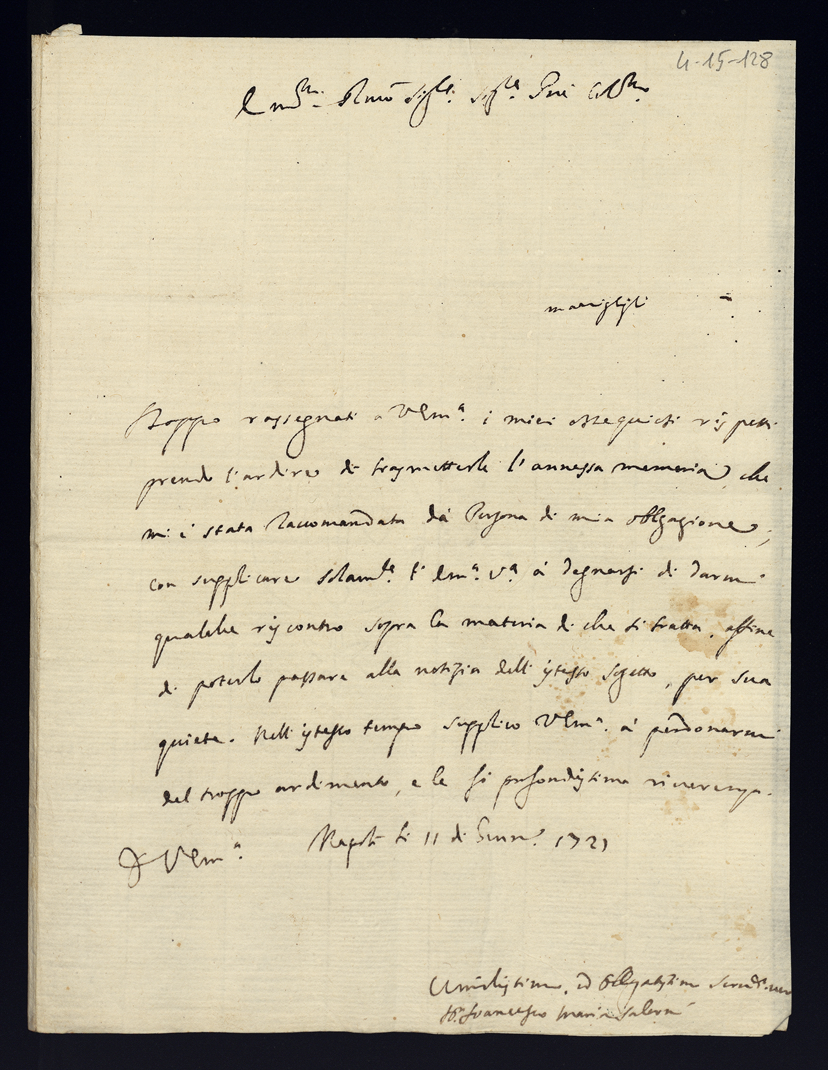 4-15-128
Emo.
Doppo rassegnati a VEma. i miei ossequiosi rispetti
prendo l'ardire di trasmetterle l'annessa memoria, che
mi è stata raccomandata da Persona di mia obbligazione,
con supplicare solamte. l'Ema. Va. à degnarsi di darmi
qualche riscontro sopra la materia di che si tratta, affine
di poterlo passare alla notizia dell'istesso sogetto, per sua
quiete. Nell'istesso tempo supplico VEma. à perdonarmi
del troppo ardimento, e le fò profondissima riverenza.
Di VEma. Napoli li 11 di 1721
Umilissimo, ed Obbligatissimo
Francesco Maria Salerni